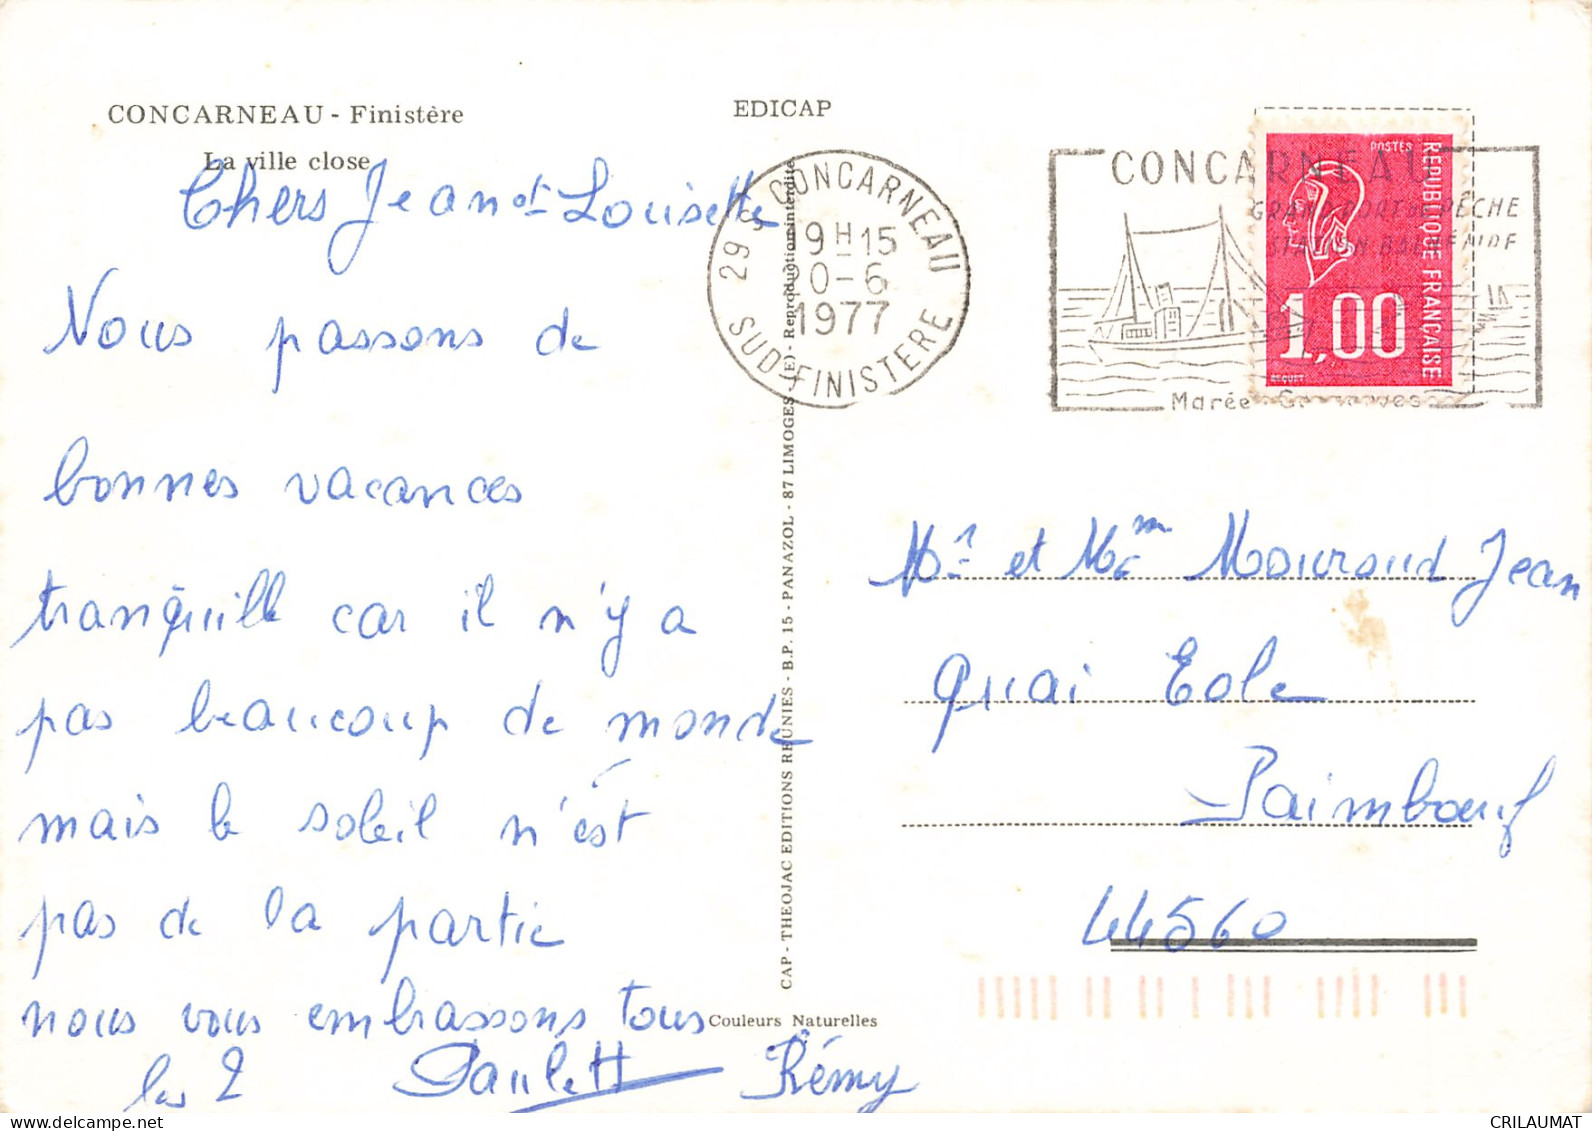 CONCARNEAU - Finistère
La ville close
EDICAP
Chers Jean et Louisette
Nous passons de
bonnes vacances
tranquille car il n'y a
pas beaucoup de monde
mais le soleil n'est
pas de la partie
nous vous embrassons tous
les 2 Paulett Rémy
CAP - THEOJAC EDITIONS REUNIES - B.P. 15 - PANAZOL - 87 LIMOGES (E) - Reproduction interdite
Couleurs Naturelles
29 S CONCARNEAU
19H15
20-6
1977
SUD-FINISTERE
CONCARNEAU
GRAND PORT DE PÊCHE
STATION BALNEAIRE
Marée
POSTES
REPUBLIQUE FRANCAISE
1,00
BEQUET
Mr et Mme Mouraud Jean
Quai Eole
Paimboeuf
44560
CRILAUMAT